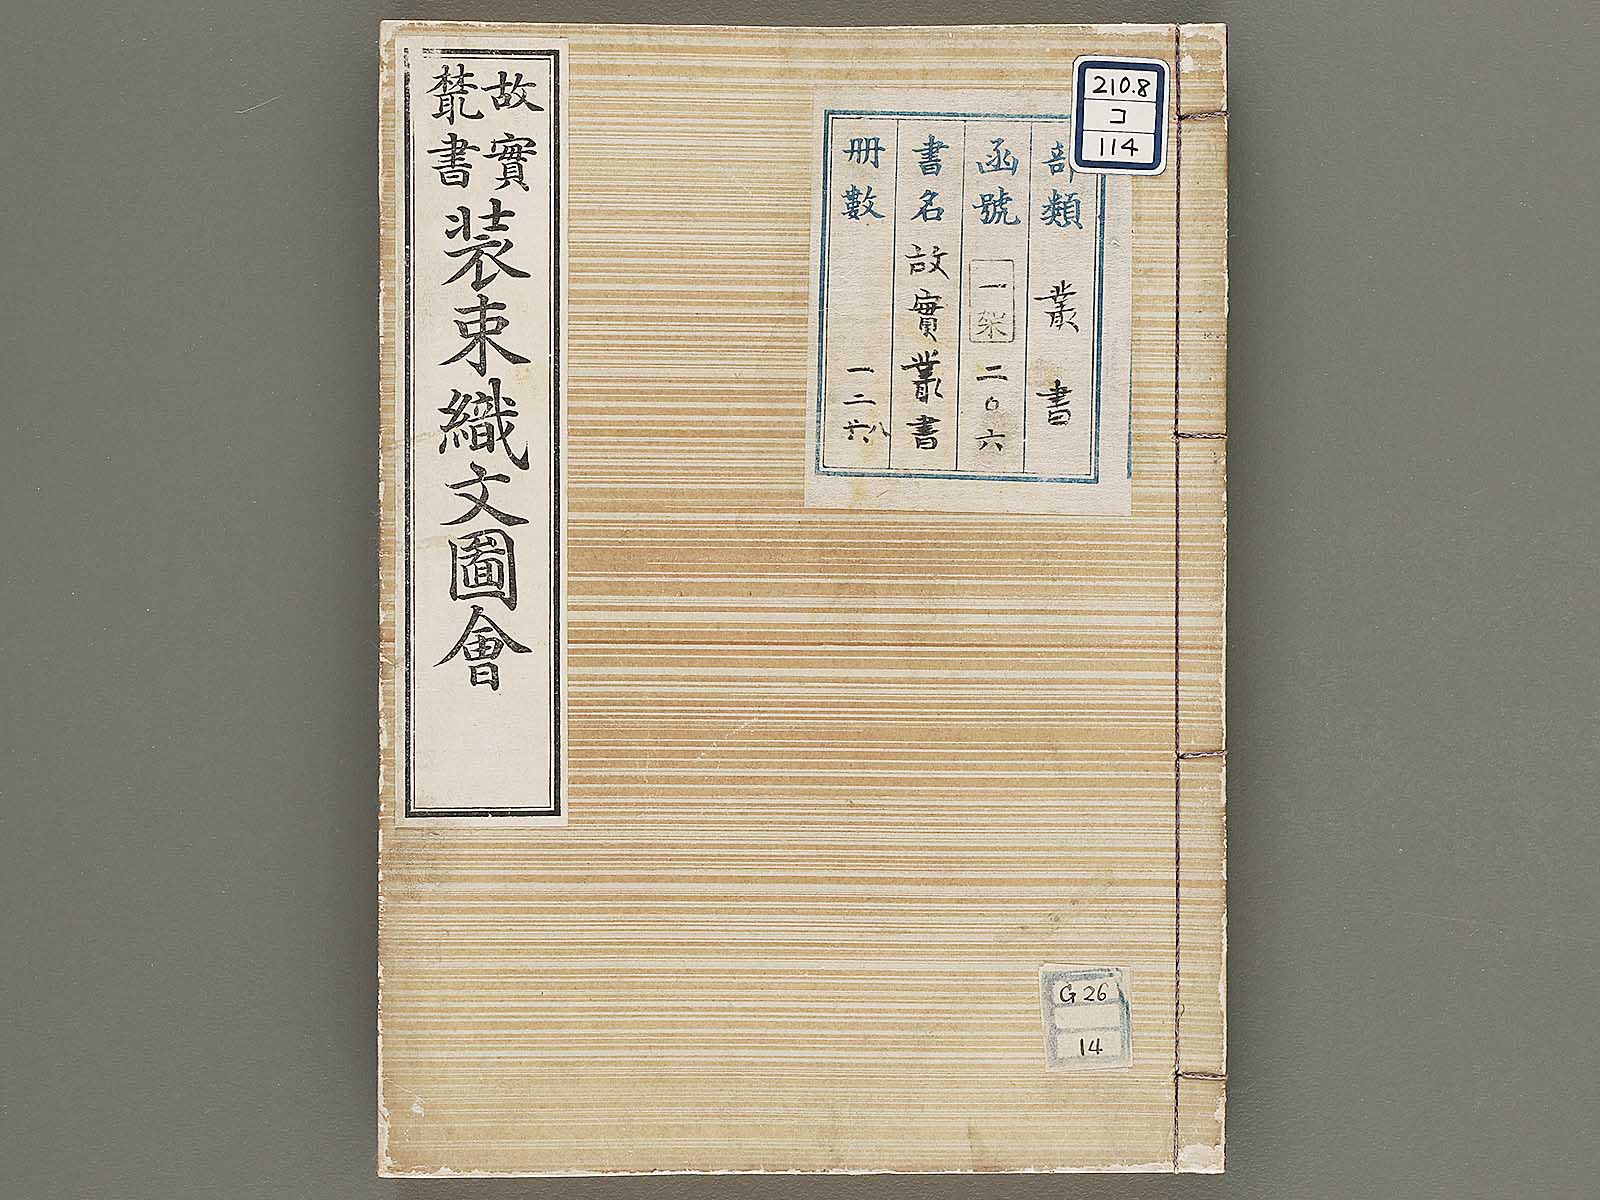 故實
藂書
装束織文圖會
部類 叢書
函號 一架 二〇六
書名 故實叢書
册數 一二六八
210.8
コ
114
G 26
14